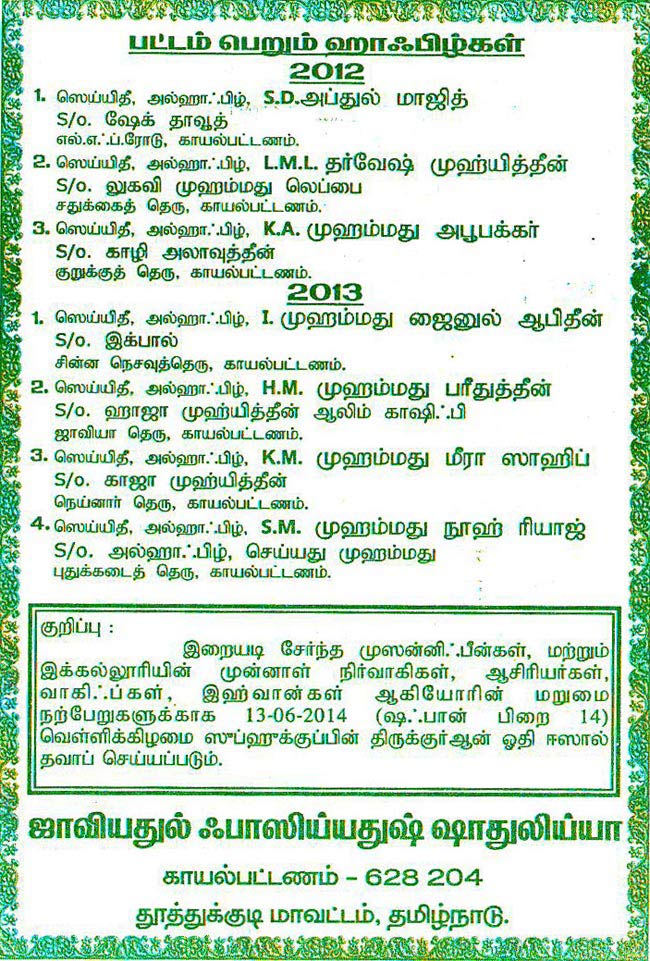 பட்டம் பெறும் ஹாஃபிழ்கள்
2012
1. ஸெய்யிதீ, அல்ஹாஃபிழ், S.D.அப்துல் மாஜித்
S/o. ஷேக் தாவூத்
எல்.எஃப்.ரோடு, காயல்பட்டணம்.
2. ஸெய்யிதீ, அல்ஹாஃபிழ், L.M.L. தர்வேஷ் முஹ்யித்தீன்
S/o. லுகவி முஹம்மது லெப்பை
சதுக்கைத் தெரு, காயல்பட்டணம்.
3. ஸெய்யிதீ, அல்ஹாஃபிழ், K.A. முஹம்மது அபூபக்கர்
S/o. காழி அலாவுத்தீன்
குறுக்குத் தெரு, காயல்பட்டணம்.
2013
1. ஸெய்யிதீ, அல்ஹாஃபிழ், I. முஹம்மது ஜைனுல் ஆபிதீன்
S/o. இக்பால்
சின்ன நெசவுத்தெரு, காயல்பட்டணம்.
2. ஸெய்யிதீ, அல்ஹாஃபிழ், H.M. முஹம்மது பரீதுத்தீன்
S/o. ஹாஜா முஹ்யித்தீன் ஆலிம் காஷிஃபி
ஜாவியா தெரு, காயல்பட்டணம்.
3. ஸெய்யிதீ, அல்ஹாஃபிழ், K.M. முஹம்மது மீரா ஸாஹிப்
S/o. காஜா முஹ்யித்தீன்
நெய்னார் தெரு, காயல்பட்டணம்.
4. ஸெய்யிதீ, அல்ஹாஃபிழ், S.M. முஹம்மது நூஹ் ரியாஜ்
S/o. அல்ஹாஃபிழ், செய்யது முஹம்மது
புதுக்கடைத் தெரு, காயல்பட்டணம்.
குறிப்பு :
இறையடி சேர்ந்த முஸன்னிஃபீன்கள், மற்றும்
இக்கல்லூரியின் முன்னாள் நிர்வாகிகள், ஆசிரியர்கள்,
வாகிஃப்கள், இஹ்வான்கள் ஆகியோரின் மறுமை
நற்பேறுகளுக்காக 13-06-2014 (ஷஃபான் பிறை 14)
வெள்ளிக்கிழமை ஸுப்ஹுக்குப்பின் திருக்குர்ஆன் ஓதி ஈஸால்
தவாப் செய்யப்படும்.
ஜாவியதுல் ஃபாஸிய்யதுஷ் ஷாதுலிய்யா
காயல்பட்டணம் – 628 204
தூத்துக்குடி மாவட்டம், தமிழ்நாடு.